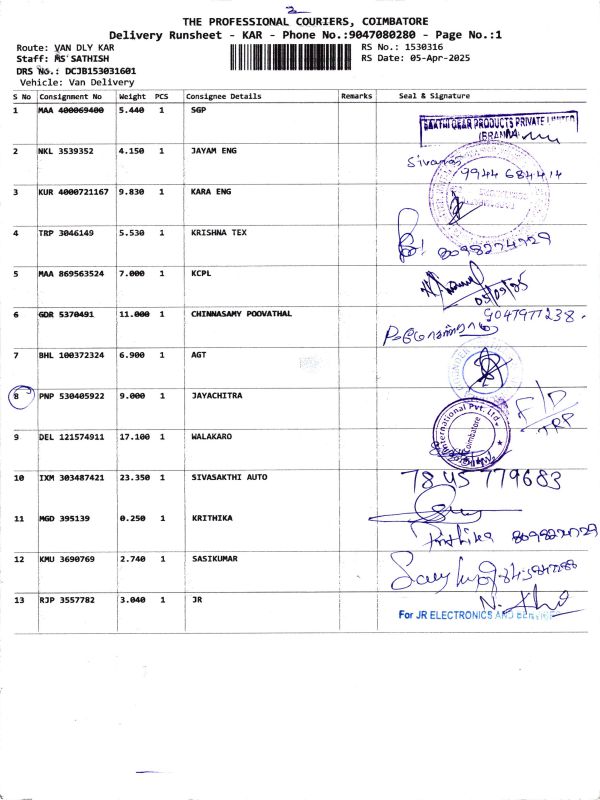 THE PROFESSIONAL COURIERS, COIMBATORE
Delivery Runsheet - KAR - Phone No.:9047080280 - Page No.:1
Route: VAN DLY KAR
RS No.: 1530316
Staff: MS SATHISH
RS Date: 05-Apr-2025
DRS No.: DCJB153031601
Vehicle: Van Delivery
S No Consignment No Weight PCS Consignee Details Remarks Seal & Signature
1 MAA 400069400 5.440 1 SGP
SAKTHI GEAR PRODUCTS PRIVATE LIMITED
2 NKL 3539352 4.150 1 JAYAM ENG
9944684414
3 KUR 4000721167 9.830 1 KARA ENG
4 TRP 3046149 5.530 1 KRISHNA TEX
8098274729
5 MAA 869563524 7.000 1 KCPL
6 GDR 5370491 11.000 1 CHINNASAMY POOVATHAL
9047977238
7 BHL 100372324 6.900 1 AGT
8 PNP 530405922 9.000 1 JAYACHITRA
F/D
TRP
9 DEL 121574911 17.100 1 WALAKARO
International Pvt. Ltd.
Coimbatore
10 IXM 303487421 23.350 1 SIVASAKTHI AUTO
7845779683
11 MGD 395139 0.250 1 KRITHIKA
Krithika
12 KMU 3690769 2.740 1 SASIKUMAR
13 RJP 3557782 3.040 1 JR
For JR ELECTRONICS AND SERVICE